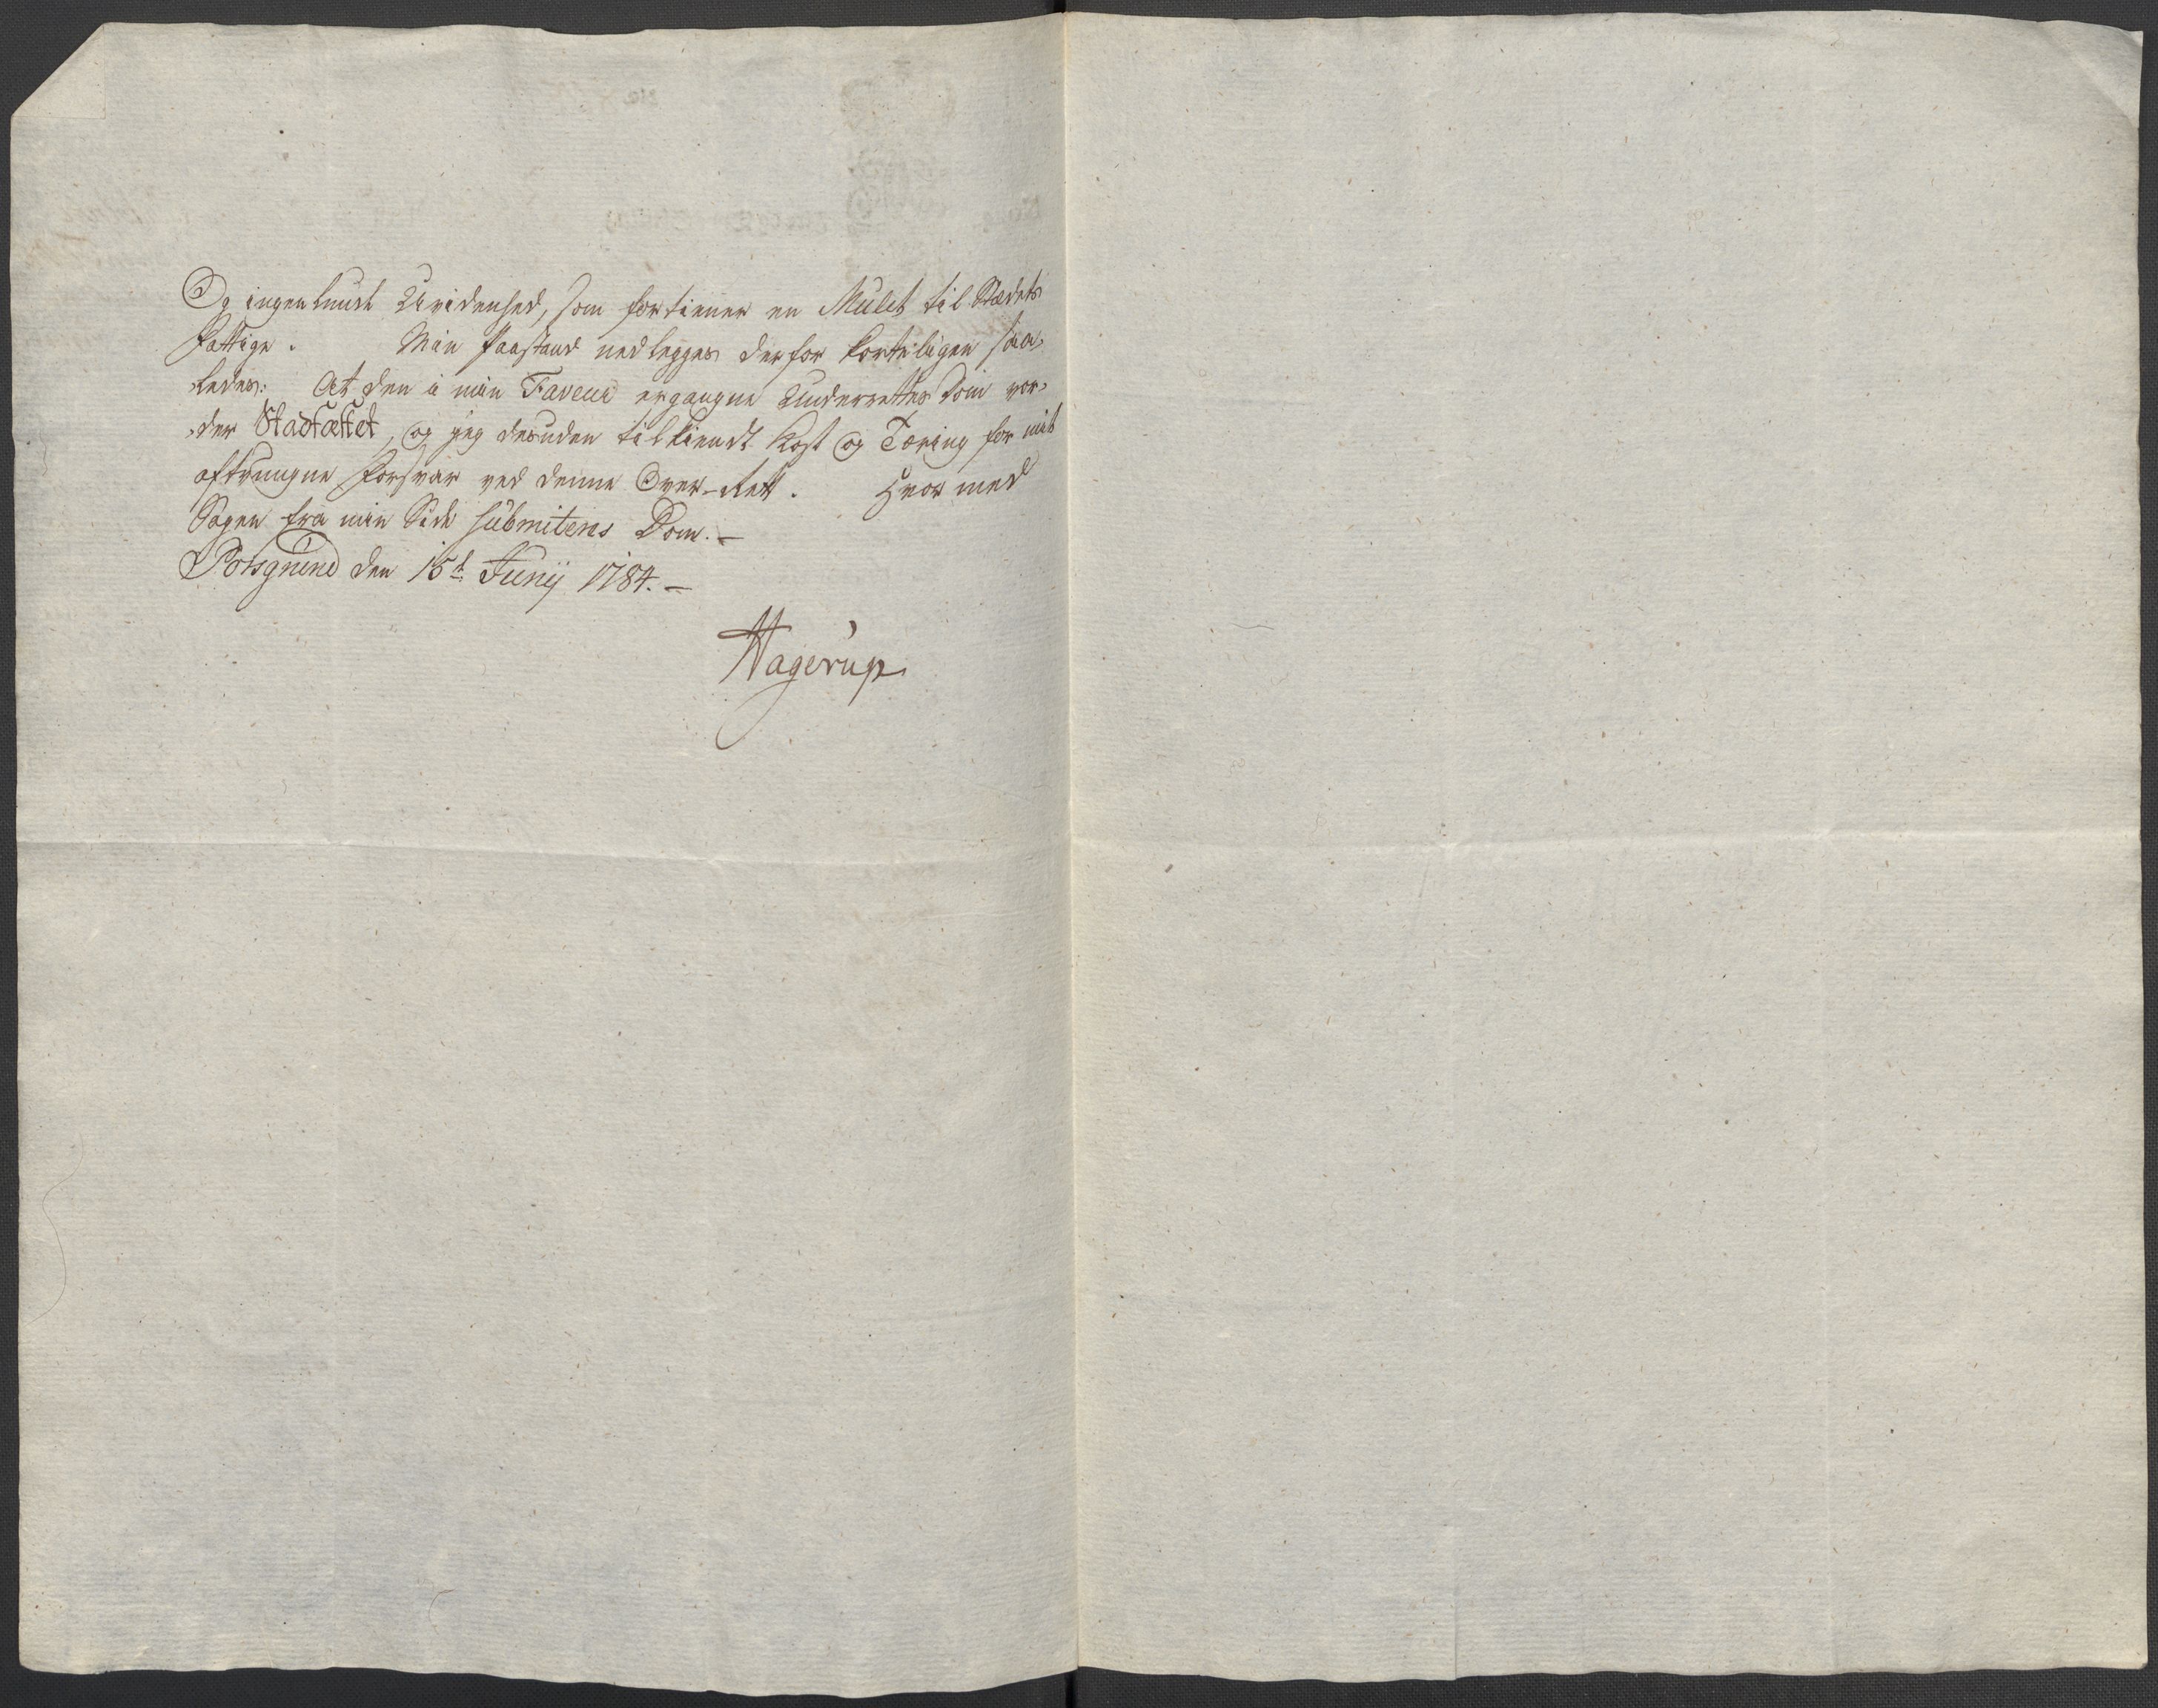 Og ingenlunde Uvidenhed, som fortiener en Mulct til Stædets
Fattige. Min Paastand nedlegges derfor korteligen saa-
ledes: At den i min Faveur ergangne Underrettes Dom vor-
der Stadfæstet, og jeg desuden tilkiendt Kost og Tæring for mit
aftvungne Forsvar ved denne Over-Rett. Hvor med
Sagen fra min Side submiteres Dom. –
Porsgrund den 15d Junij 1784. –
Hagerup